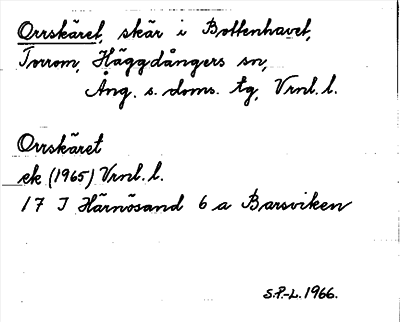 Orrskäret, skär i Bottenhavet,
Torrom, Häggdångers sn,
Ång. s. doms. tg, Vrnl. l.
Orrskäret
ek (1965) Vrnl. l.
17 J Härnösand 6 a Barsviken
S.P.-L. 1966.